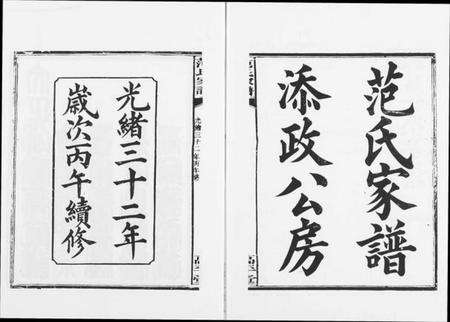 范氏家譜
添政公房
光緒三十二年
歲次丙午續修